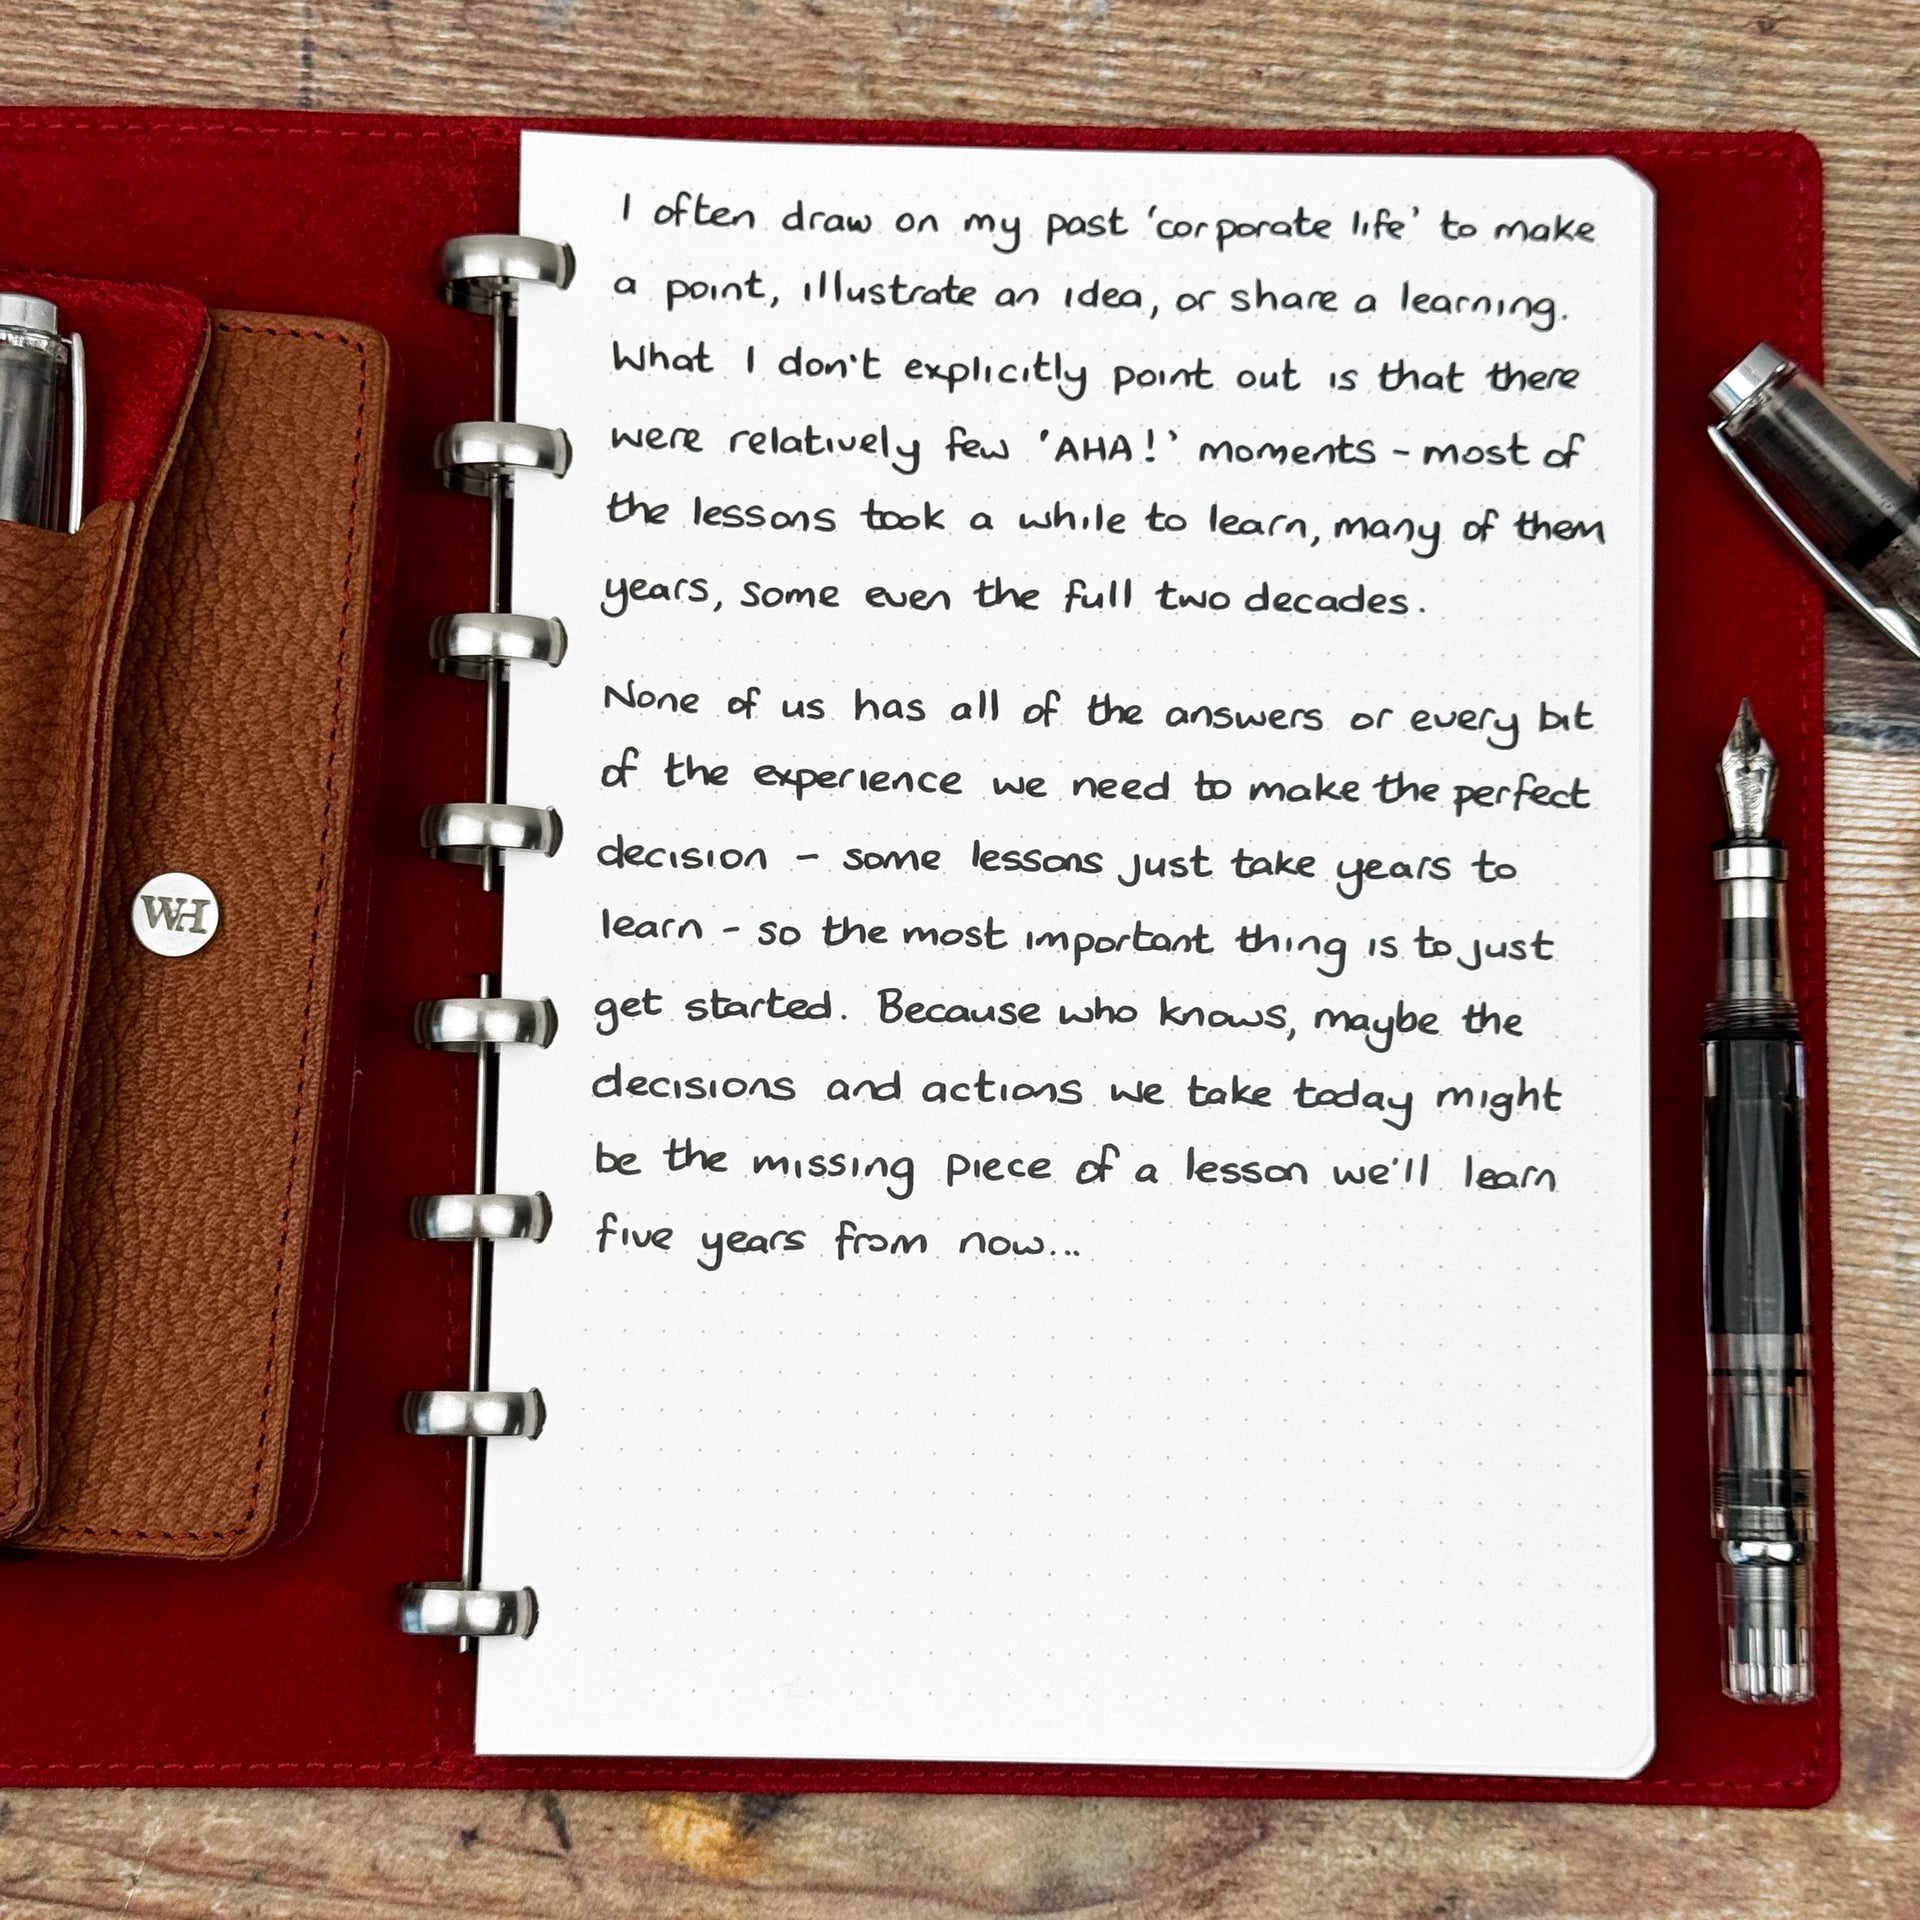 I often draw on my past 'corporate life' to make
a point, illustrate an idea, or share a learning.
What I don't explicitly point out is that there
were relatively few 'AHA!' moments - most of
the lessons took a while to learn, many of them
years, some even the full two decades.
None of us has all of the answers or every bit
of the experience we need to make the perfect
decision - some lessons just take years to
learn - so the most important thing is to just
get started. Because who knows, maybe the
decisions and actions we take today might
be the missing piece of a lesson we'll learn
five years from now...
WH